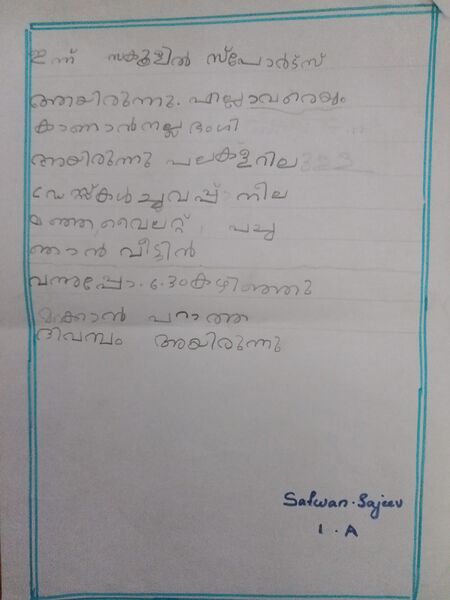 ഇന്ന് സ്കൂളിൽ സ്പോർട്സ്
ആയിരുന്നു. എല്ലാവരെയും
കാണാൻ നല്ല ഭംഗി
അയിരുന്നു പലകളറില
ഡ്രസ്സ്കൾ ചുവപ്പ് നീല
മഞ്ഞ, വൈലറ്റ്, പച്ച
ഞാൻ വീട്ടിൻ
വന്നപ്പോ. 6.30 കഴിഞ്ഞു
മക്കാൻ പറാത്ത
ദിവസം അയിരുന്നു
Safwan. Sajeev
1. A